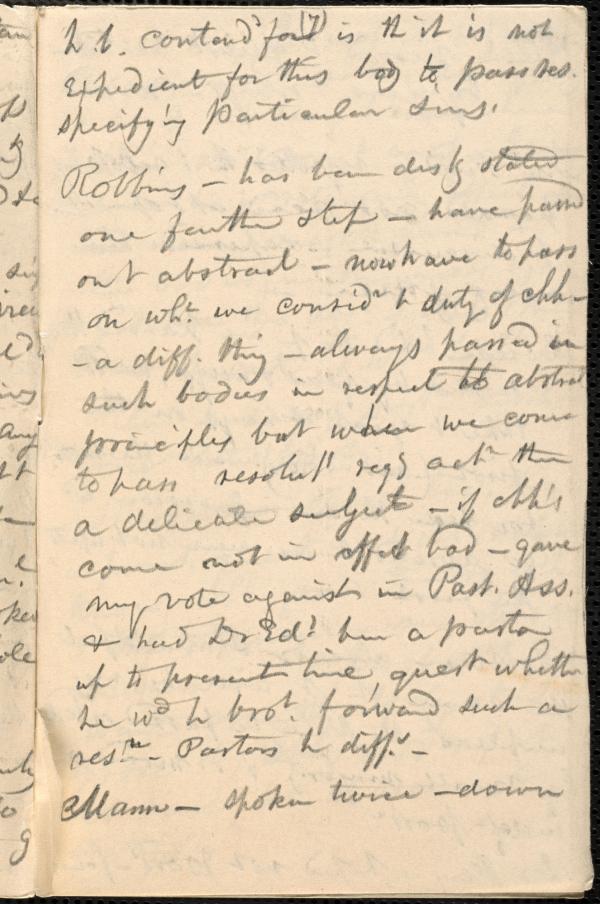 contend for (7) is th it is not
Expedient for this body to pass res.
specifying Particular Sins.
Robbins – has been disty stated
one further step – have passed
out abstract – now have to pass
on wht. we considr h duty of chh –
– a diff. thing – always passed in
such bodies in respect to abstract
principles but when we come
to pass regg actn then
a delicate subject – if chh's
come not in effect bad – gave
my vote against in Past. Ass.
& had Dr Edd been a pastor
up to present time quest whether
he wd h brot. forward such a
resn – Pastors h
Mann – spoken twice – down